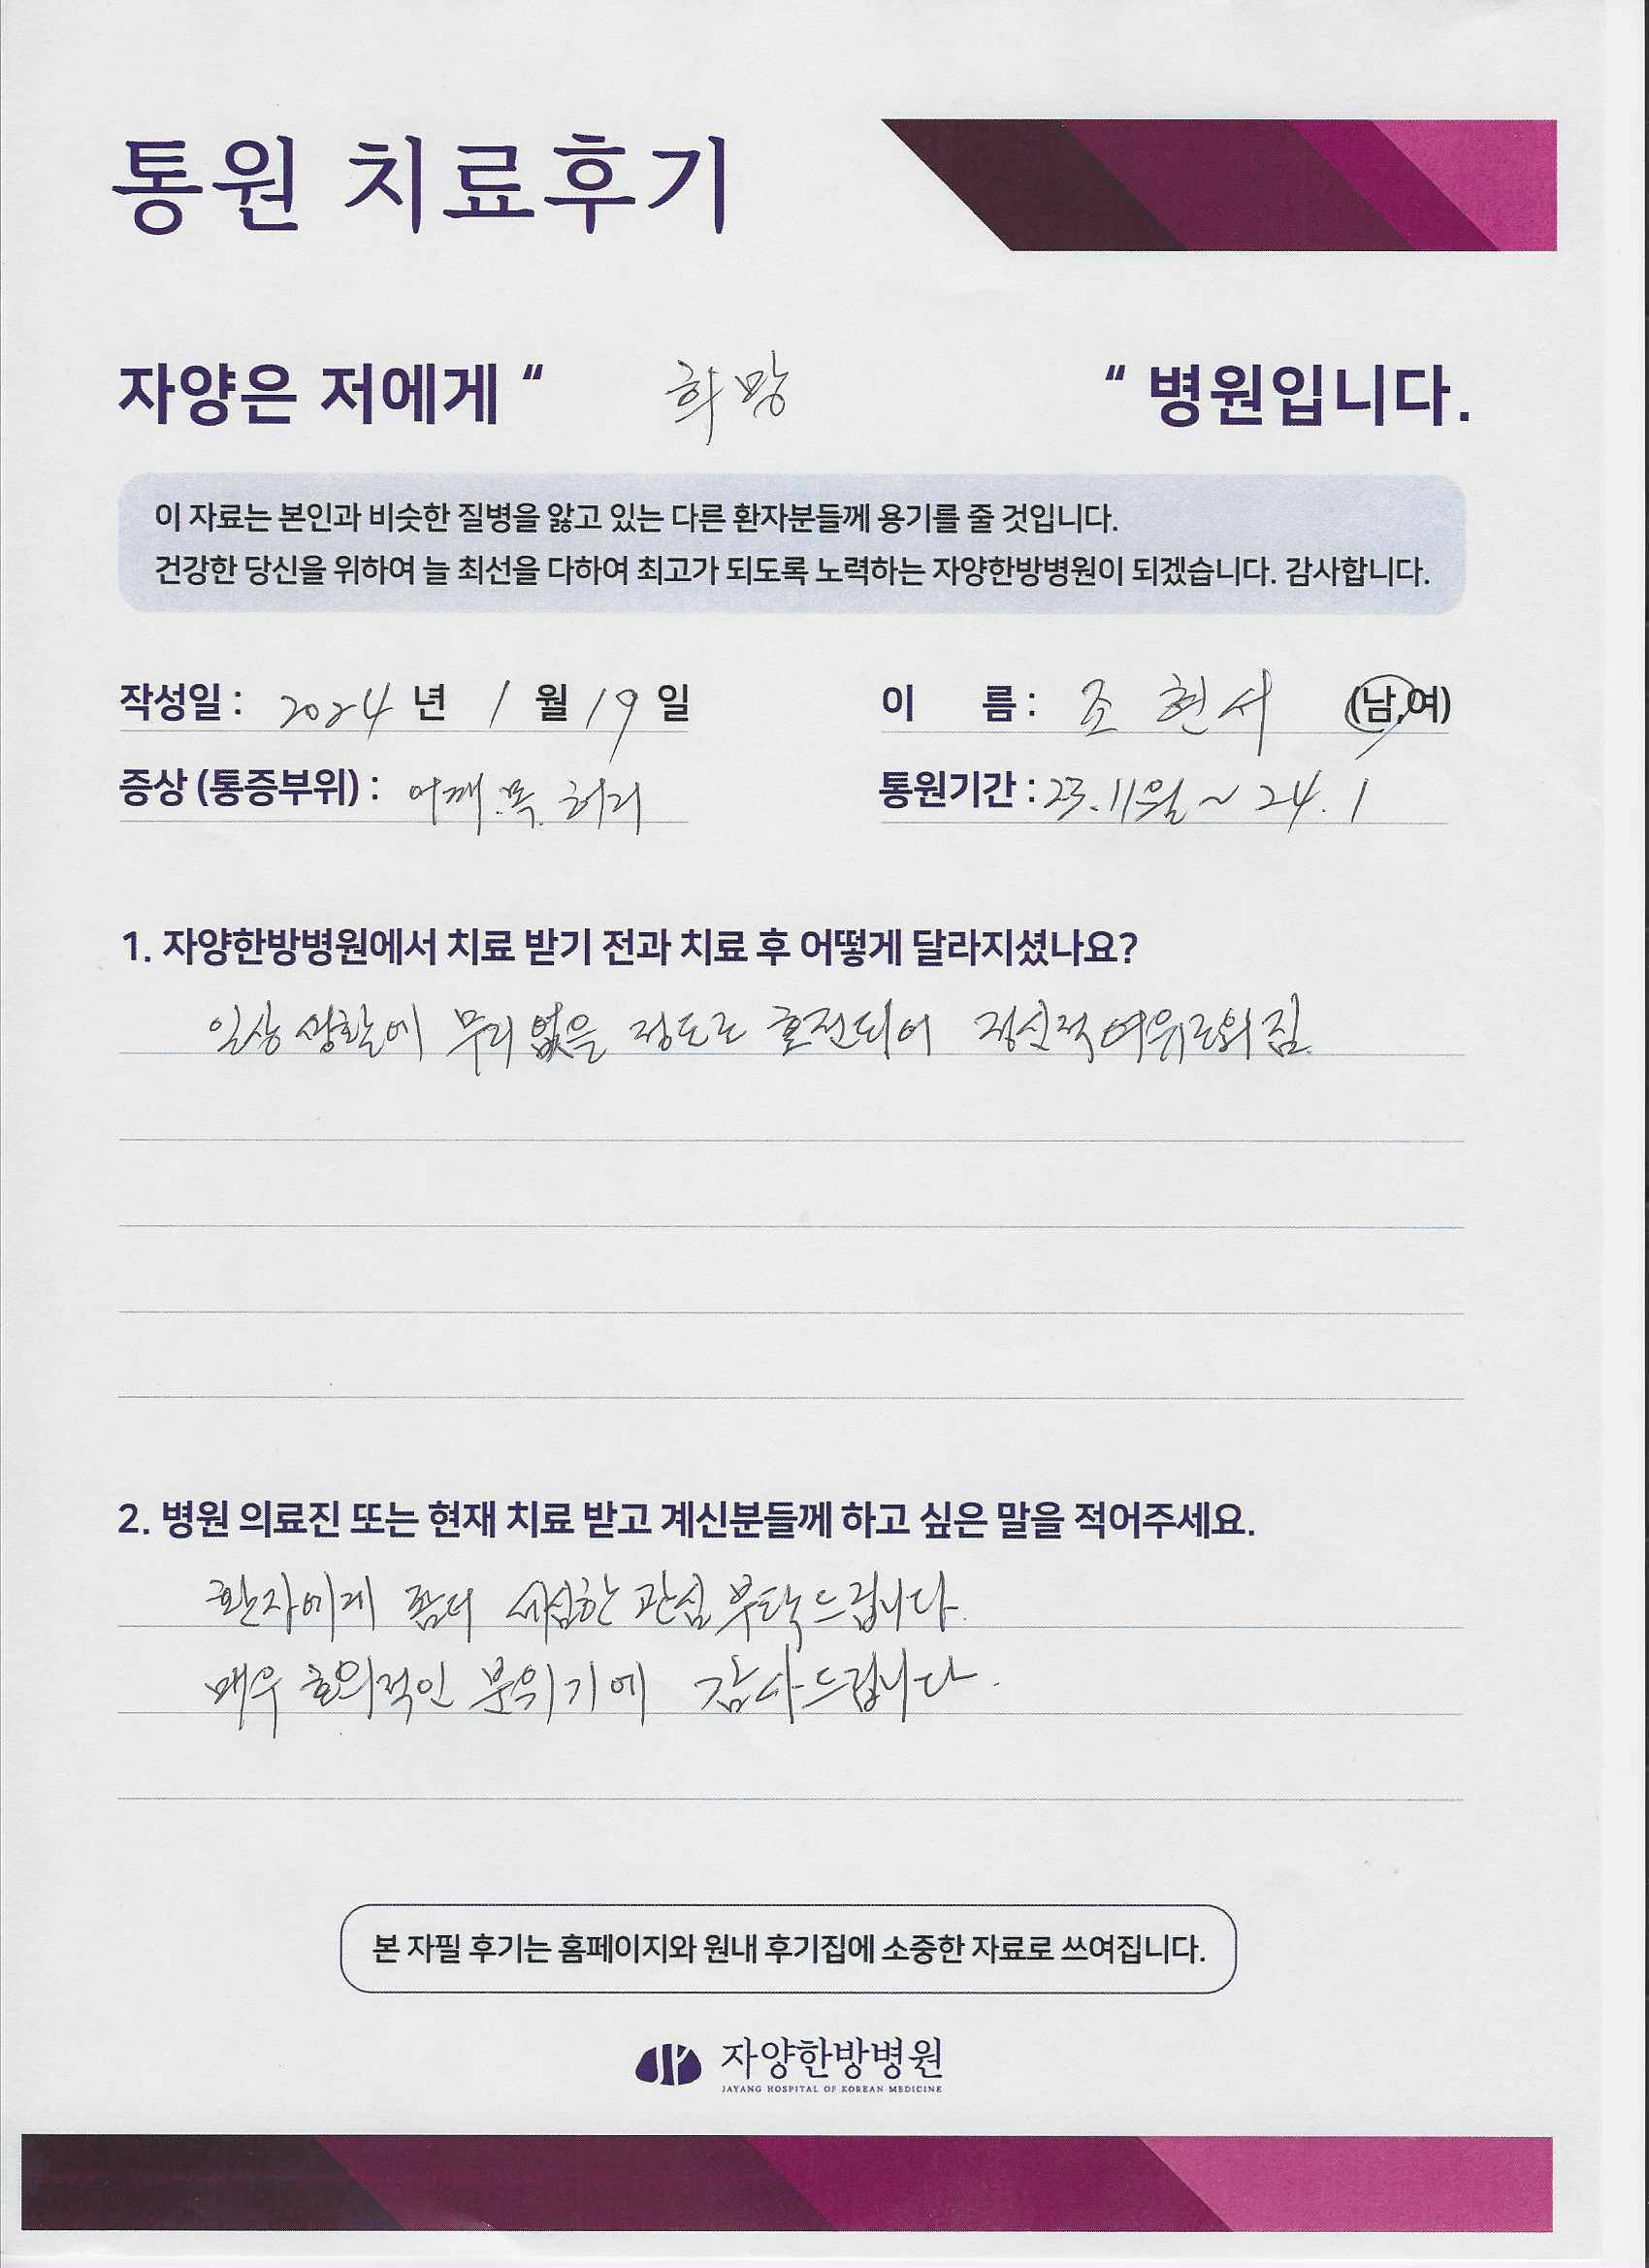 통원 치료후기
자양은 저에게 “ 희망 “ 병원입니다.
이 자료는 본인과 비슷한 질병을 앓고 있는 다른 환자분들께 용기를 줄 것입니다.
건강한 당신을 위하여 늘 최선을 다하여 최고가 되도록 노력하는 자양한방병원이 되겠습니다. 감사합니다.
작성일 : 2024 년 1 월 19 일
이 름 : 조 현서 (남,여)
증상 (통증부위) : 어깨.목. 허리
통원기간 : 23.11월 ~ 24. 1
1. 자양한방병원에서 치료 받기 전과 치료 후 어떻게 달라지셨나요?
일상 생활에 무리 없을 정도로 호전되어 정신적 여유로워 짐.
2. 병원 의료진 또는 현재 치료 받고 계신분들께 하고 싶은 말을 적어주세요.
환자에게 좀더 세심한 관심 부탁드립니다.
매우 호의적인 분위기에 감사드립니다.
본 자필 후기는 홈페이지와 원내 후기집에 소중한 자료로 쓰여집니다.
자양한방병원
JAYANG HOSPITAL OF KOREAN MEDICINE